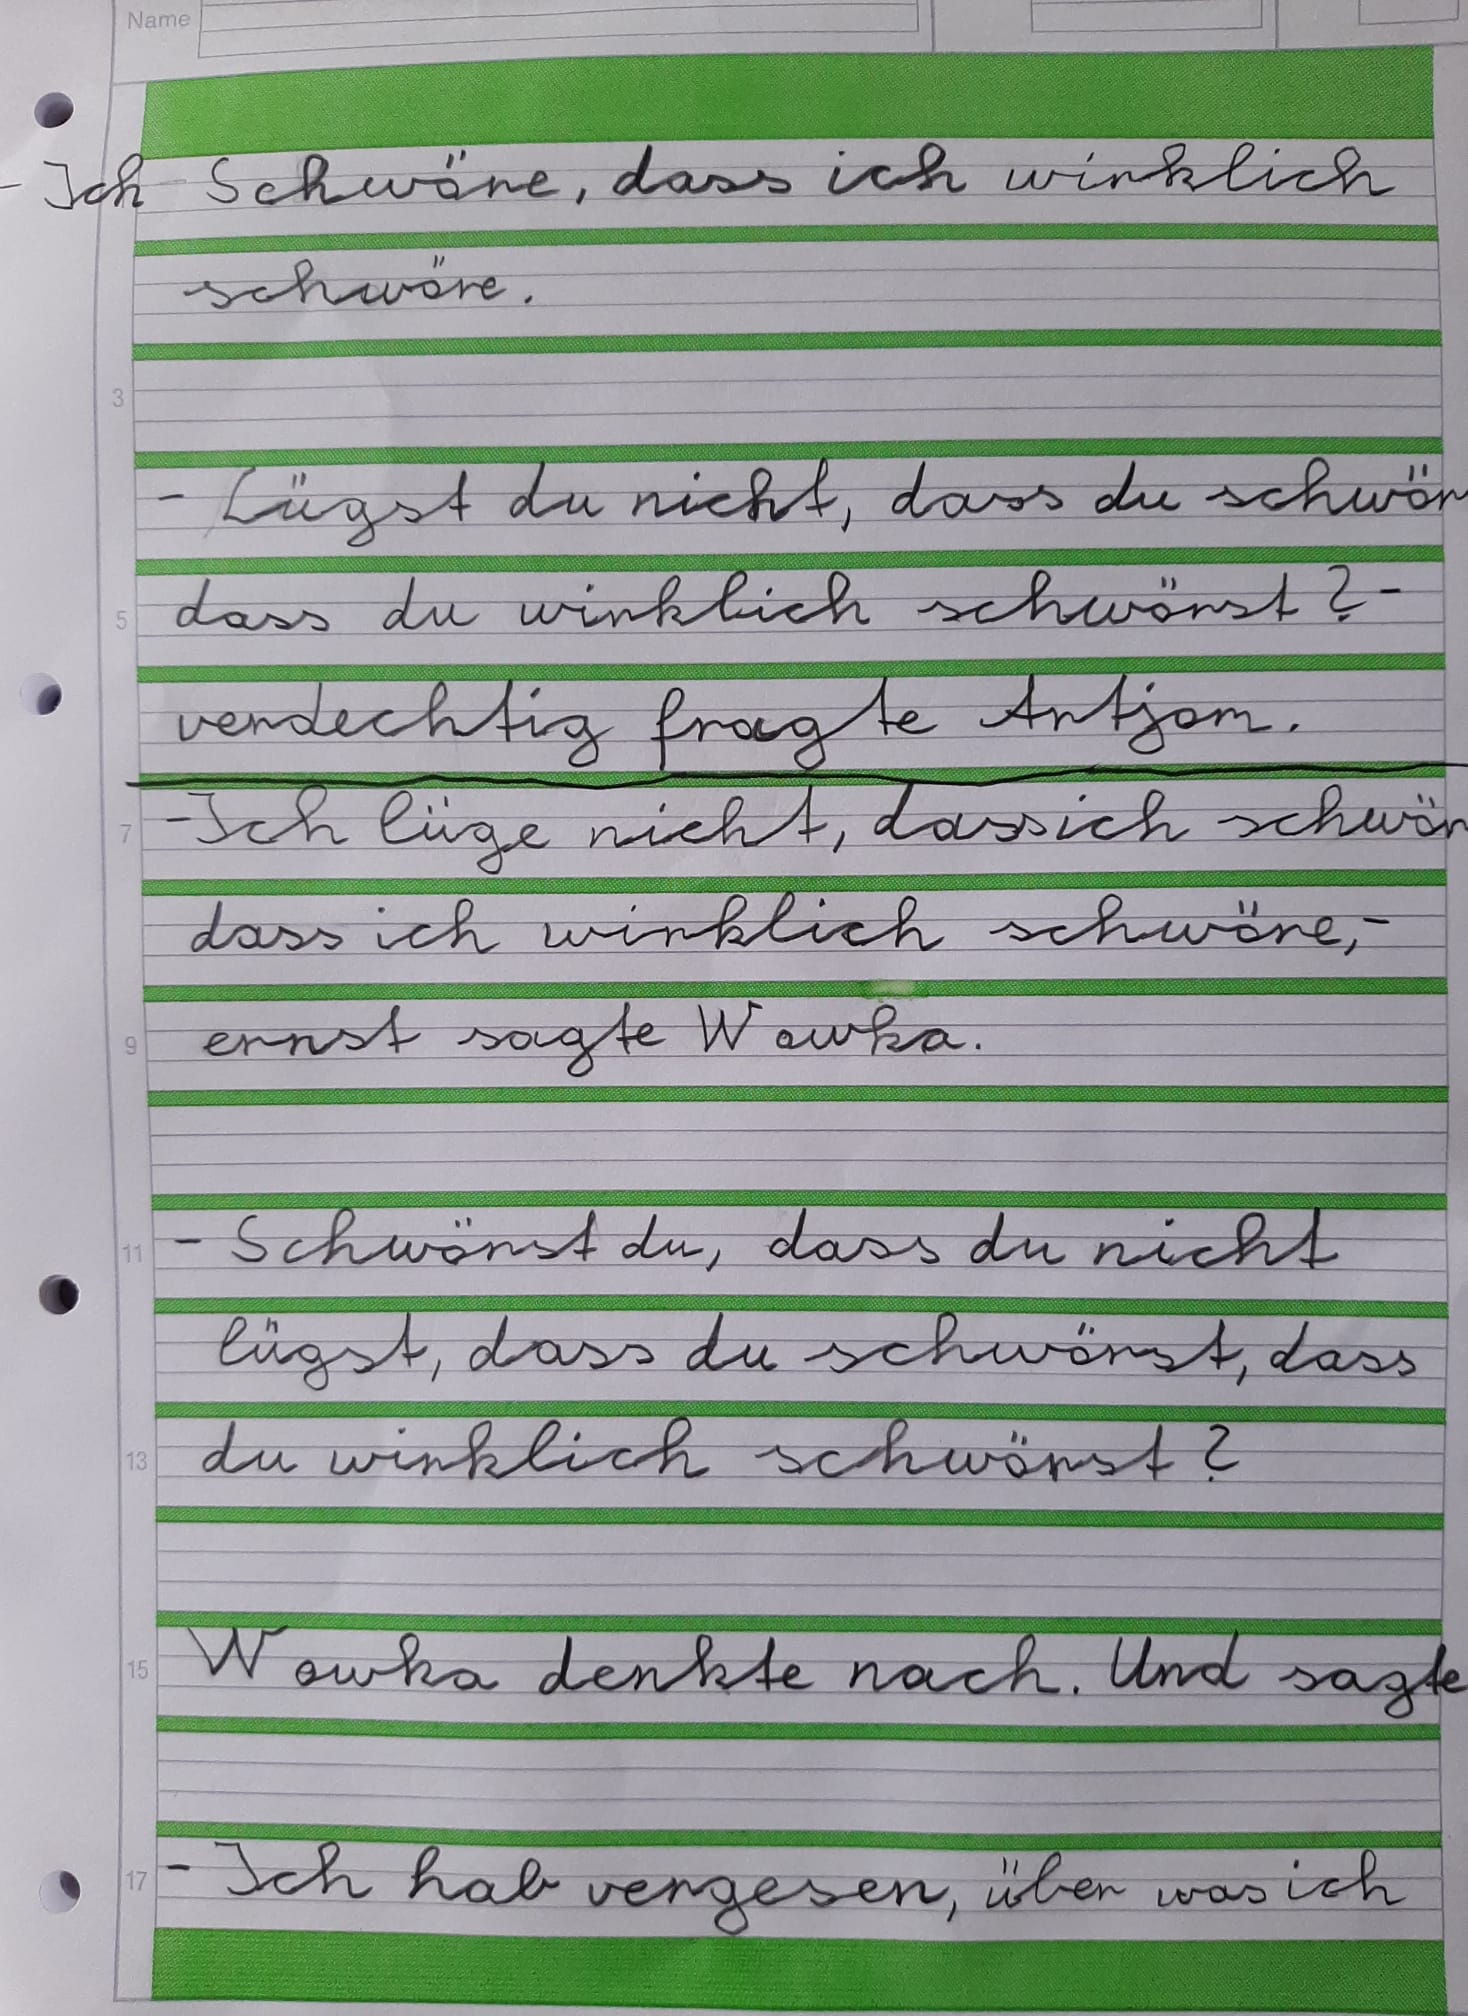 Name
- Ich Schwöre, dass ich wirklich
schwöre.
3
- Lügst du nicht, dass du schwör
5 dass du wirklich schwörst? -
verdechtig fragte Artjom.
7 - Ich lüge nicht, dass ich schwör
dass ich wirklich schwöre, -
9 ernst sagte Wowka.
11 - Schwörst du, dass du nicht
lügst, dass du schwörst, dass
13 du wirklich schwörst?
15 Wowka denkte nach. Und sagte
17 - Ich hab vergesen, über was ich